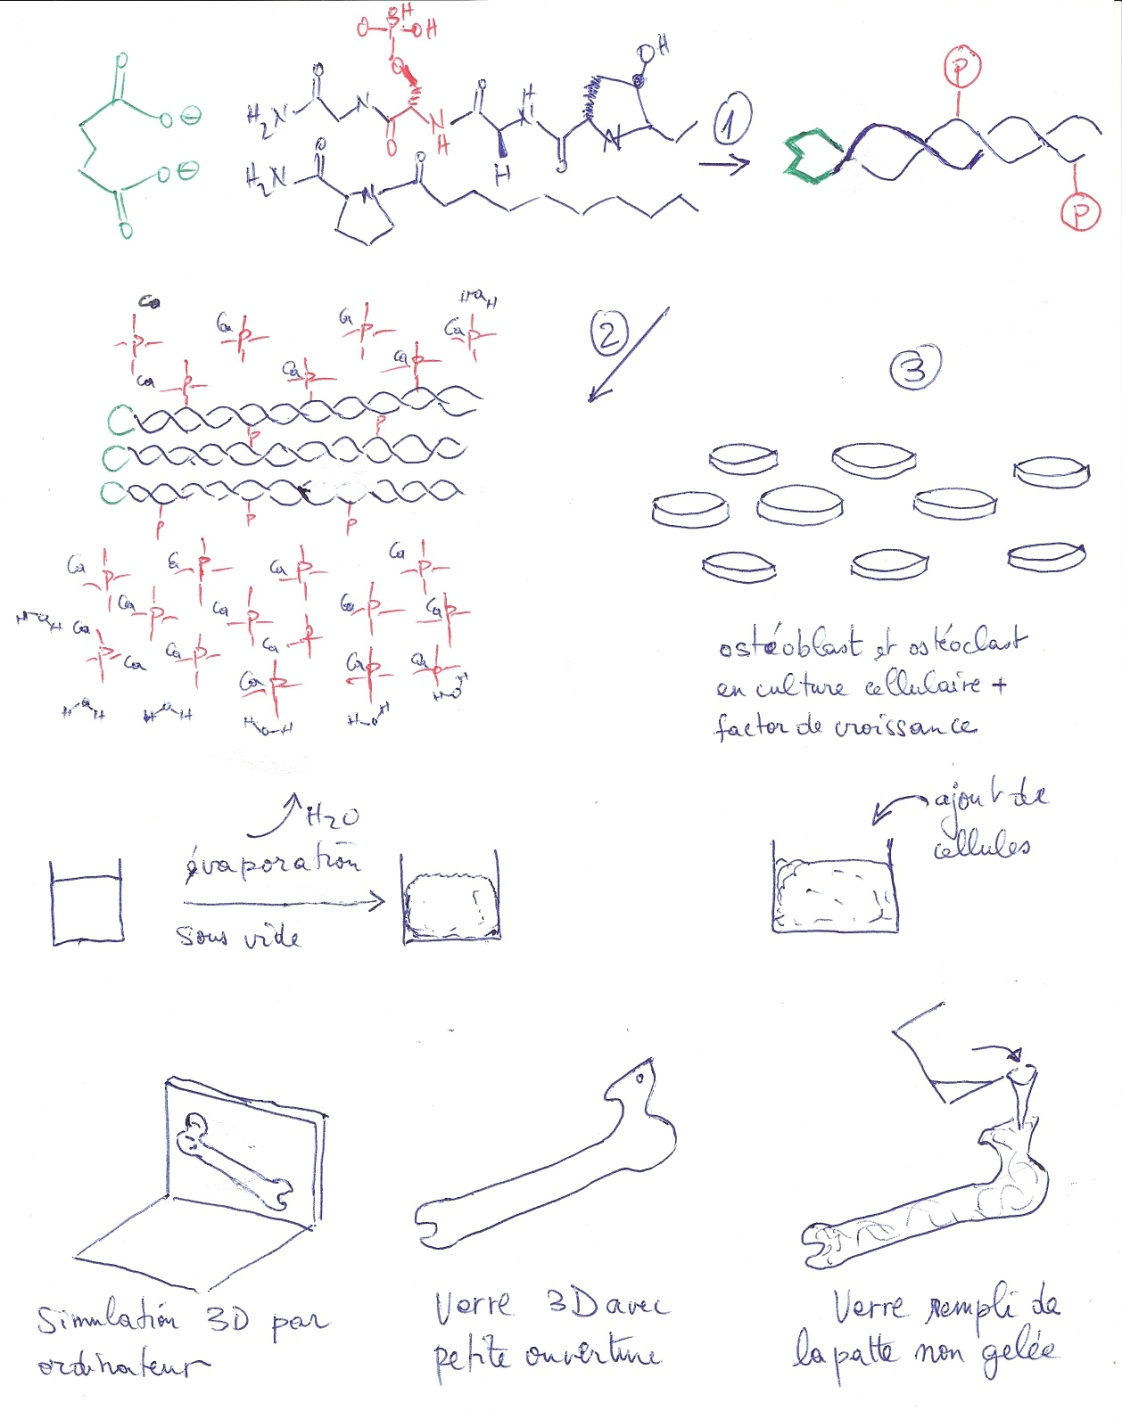 O
O ⊖
O ⊖
O
OH
O P OH
O
H₂N
O
N
O
N
H
O
H
H
N
O
N
OH
H₂N
O
N
O
①
P
P
②
③
Ca P
Ca P
Ca P
Ca P
H O H
Ca P
Ca P
Ca P
P
P
P
P
P
Ca P
Ca P
Ca P
Ca P
H O H
ostéoblast et ostéoclast
en culture cellulaire +
factor de croissance
H₂O
évaporation
sous vide
ajout de
cellules
Simulation 3D par
ordinateur
Verre 3D avec
petite ouverture
Verre rempli de
la patte non gelée